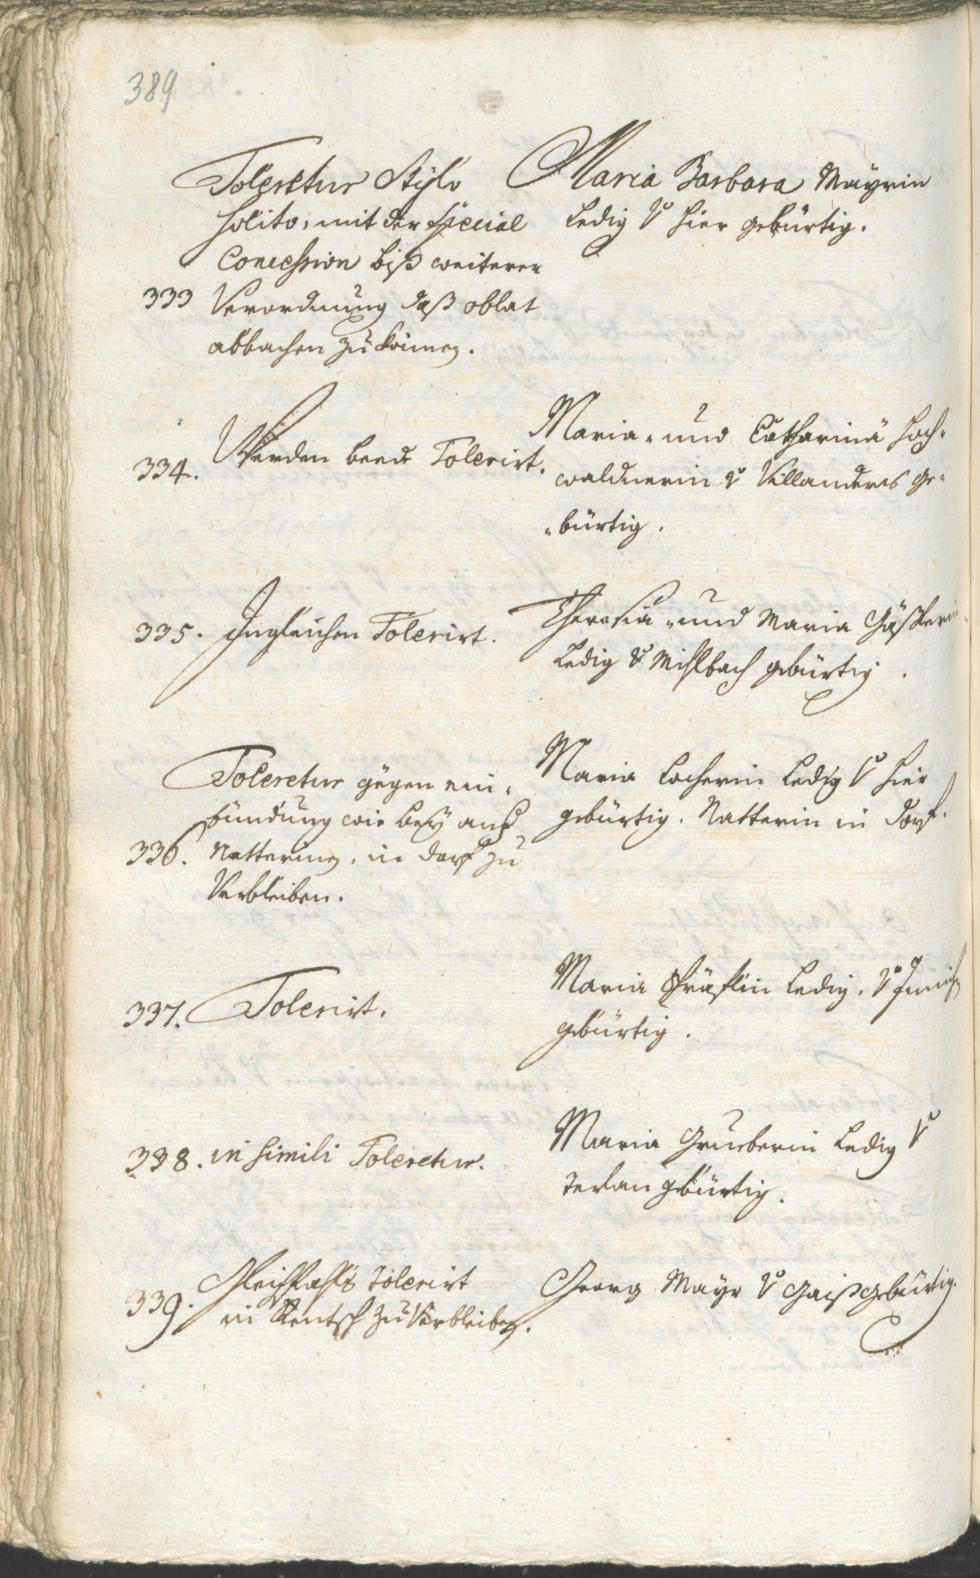 389
Toleretur Stylo
solito, mit der special
Concession biß weiterer
333 Verordnung daß oblat
abbachen zu können.
Maria Barbara Mayrin
ledig v hier gebürtig.
334. Werden beede Tolerirt.
Maria- und Catharina Hoch-
waldnerin v Villanders ge-
bürtig.
335. Ingleichen Tolerirt.
Theresia- und Maria
ledig v Mihlbach gebürtig.
Toleretur gegen ein-
bündung wie bey
336. Natterin, in Dorf zu
Verbleiben.
Maria Locherin ledig v hier
gebürtig. Natterin in Dorf.
337. Tolerirt.
Maria ledig, v
gebürtig.
338. in simili Toleretur.
Maria Grueberin ledig v
Terlan gebürtig.
339. Gleichfahls tolerirt
in Rentsch zu Verbleiben.
Georg Mayr v gebürtig.